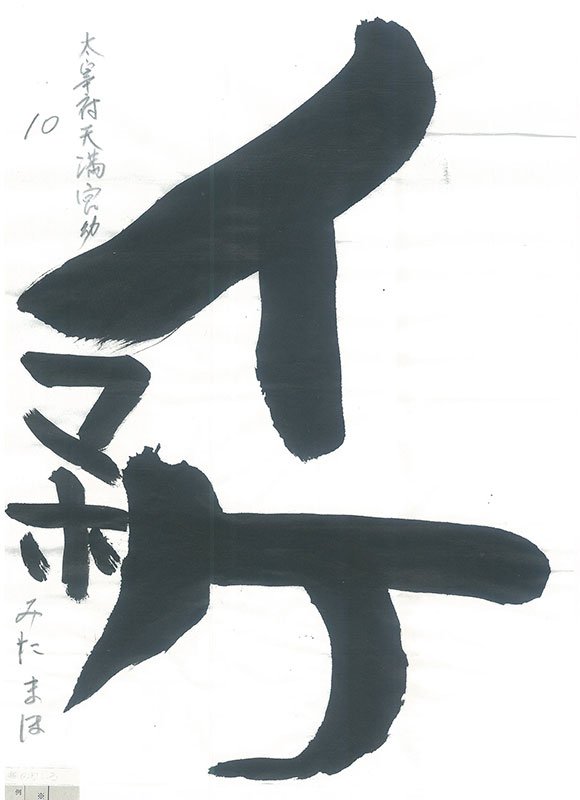 イケ
マホ
太宰府天満宮幼
10
みた まほ
例 ※